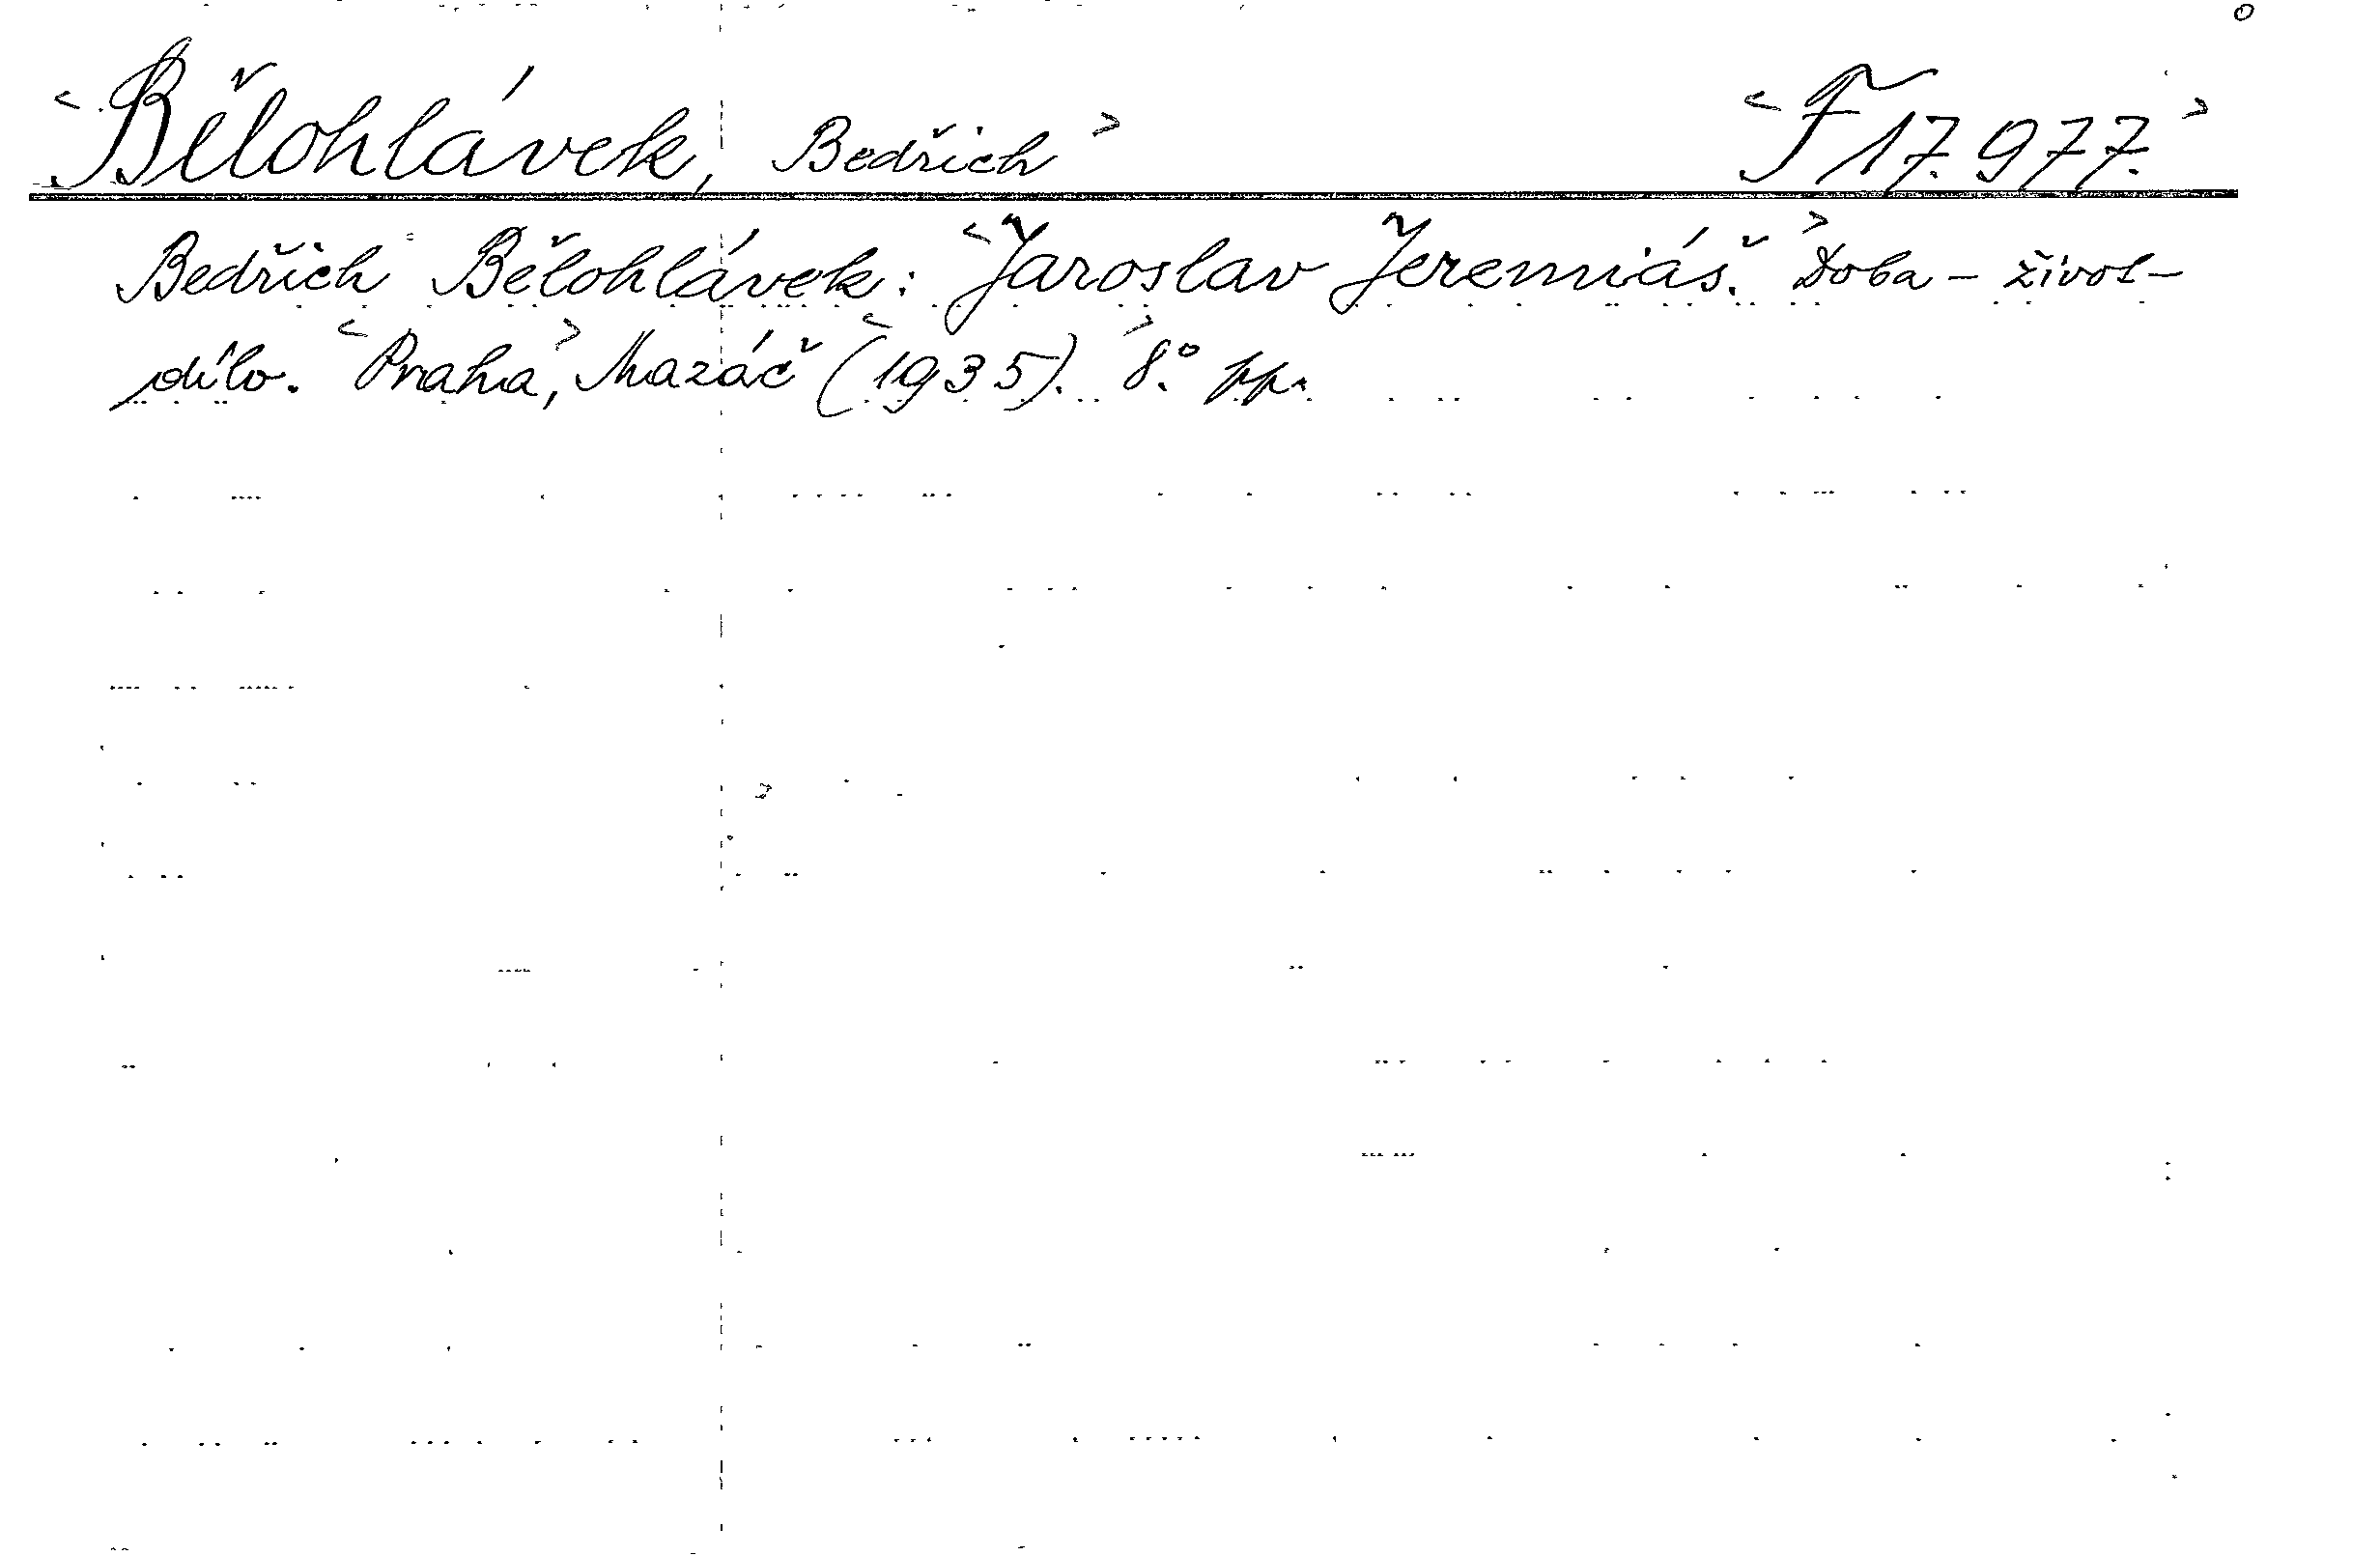 <Bělohlávek, Bedřich> <F 17.977.>
Bedřich Bělohlávek: <Jaroslav Jeremiáš.> Doba - život -
dílo. <Praha,> Mazáč <(1935).> 8.° pp.